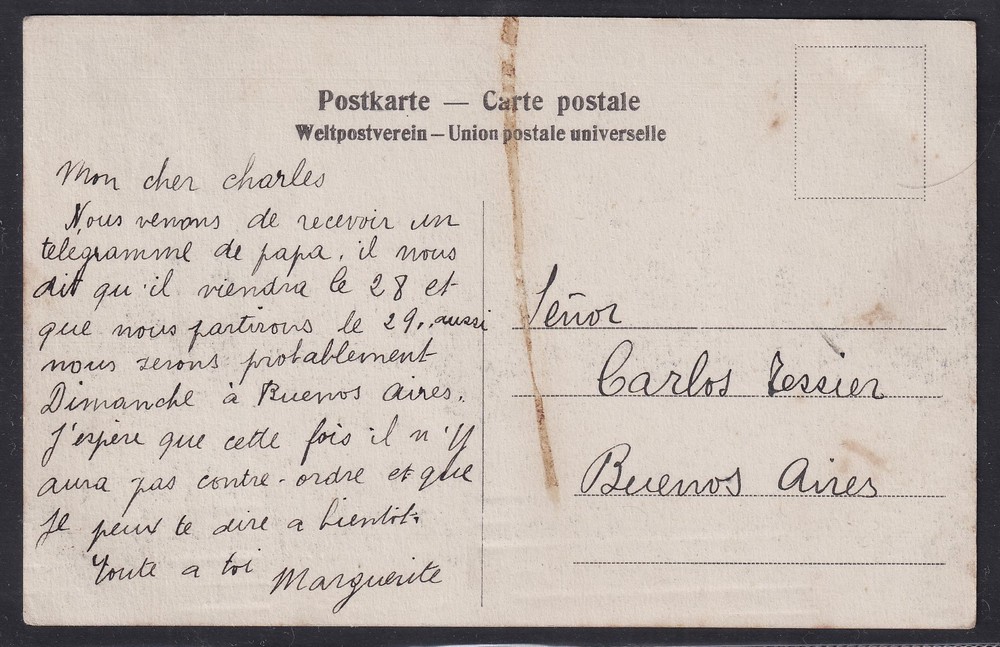 Postkarte — Carte postale
Weltpostverein – Union postale universelle
Mon cher charles
Nous venons de recevoir un
télégramme de papa, il nous
dit qu'il viendra le 28 et
que nous partirons le 29, aussi
nous serons probablement
Dimanche à Buenos Aires.
J'espère que cette fois il n'y
aura pas contre-ordre et que
je peux te dire a bientot.
Toute a toi
Marguerite
Señor
Carlos Tessier
Buenos Aires